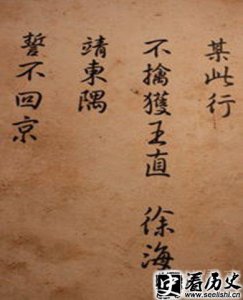 某此行
不擒獲王直 徐海
靖東隅
誓不回京
看历史
www.seelishi.cn